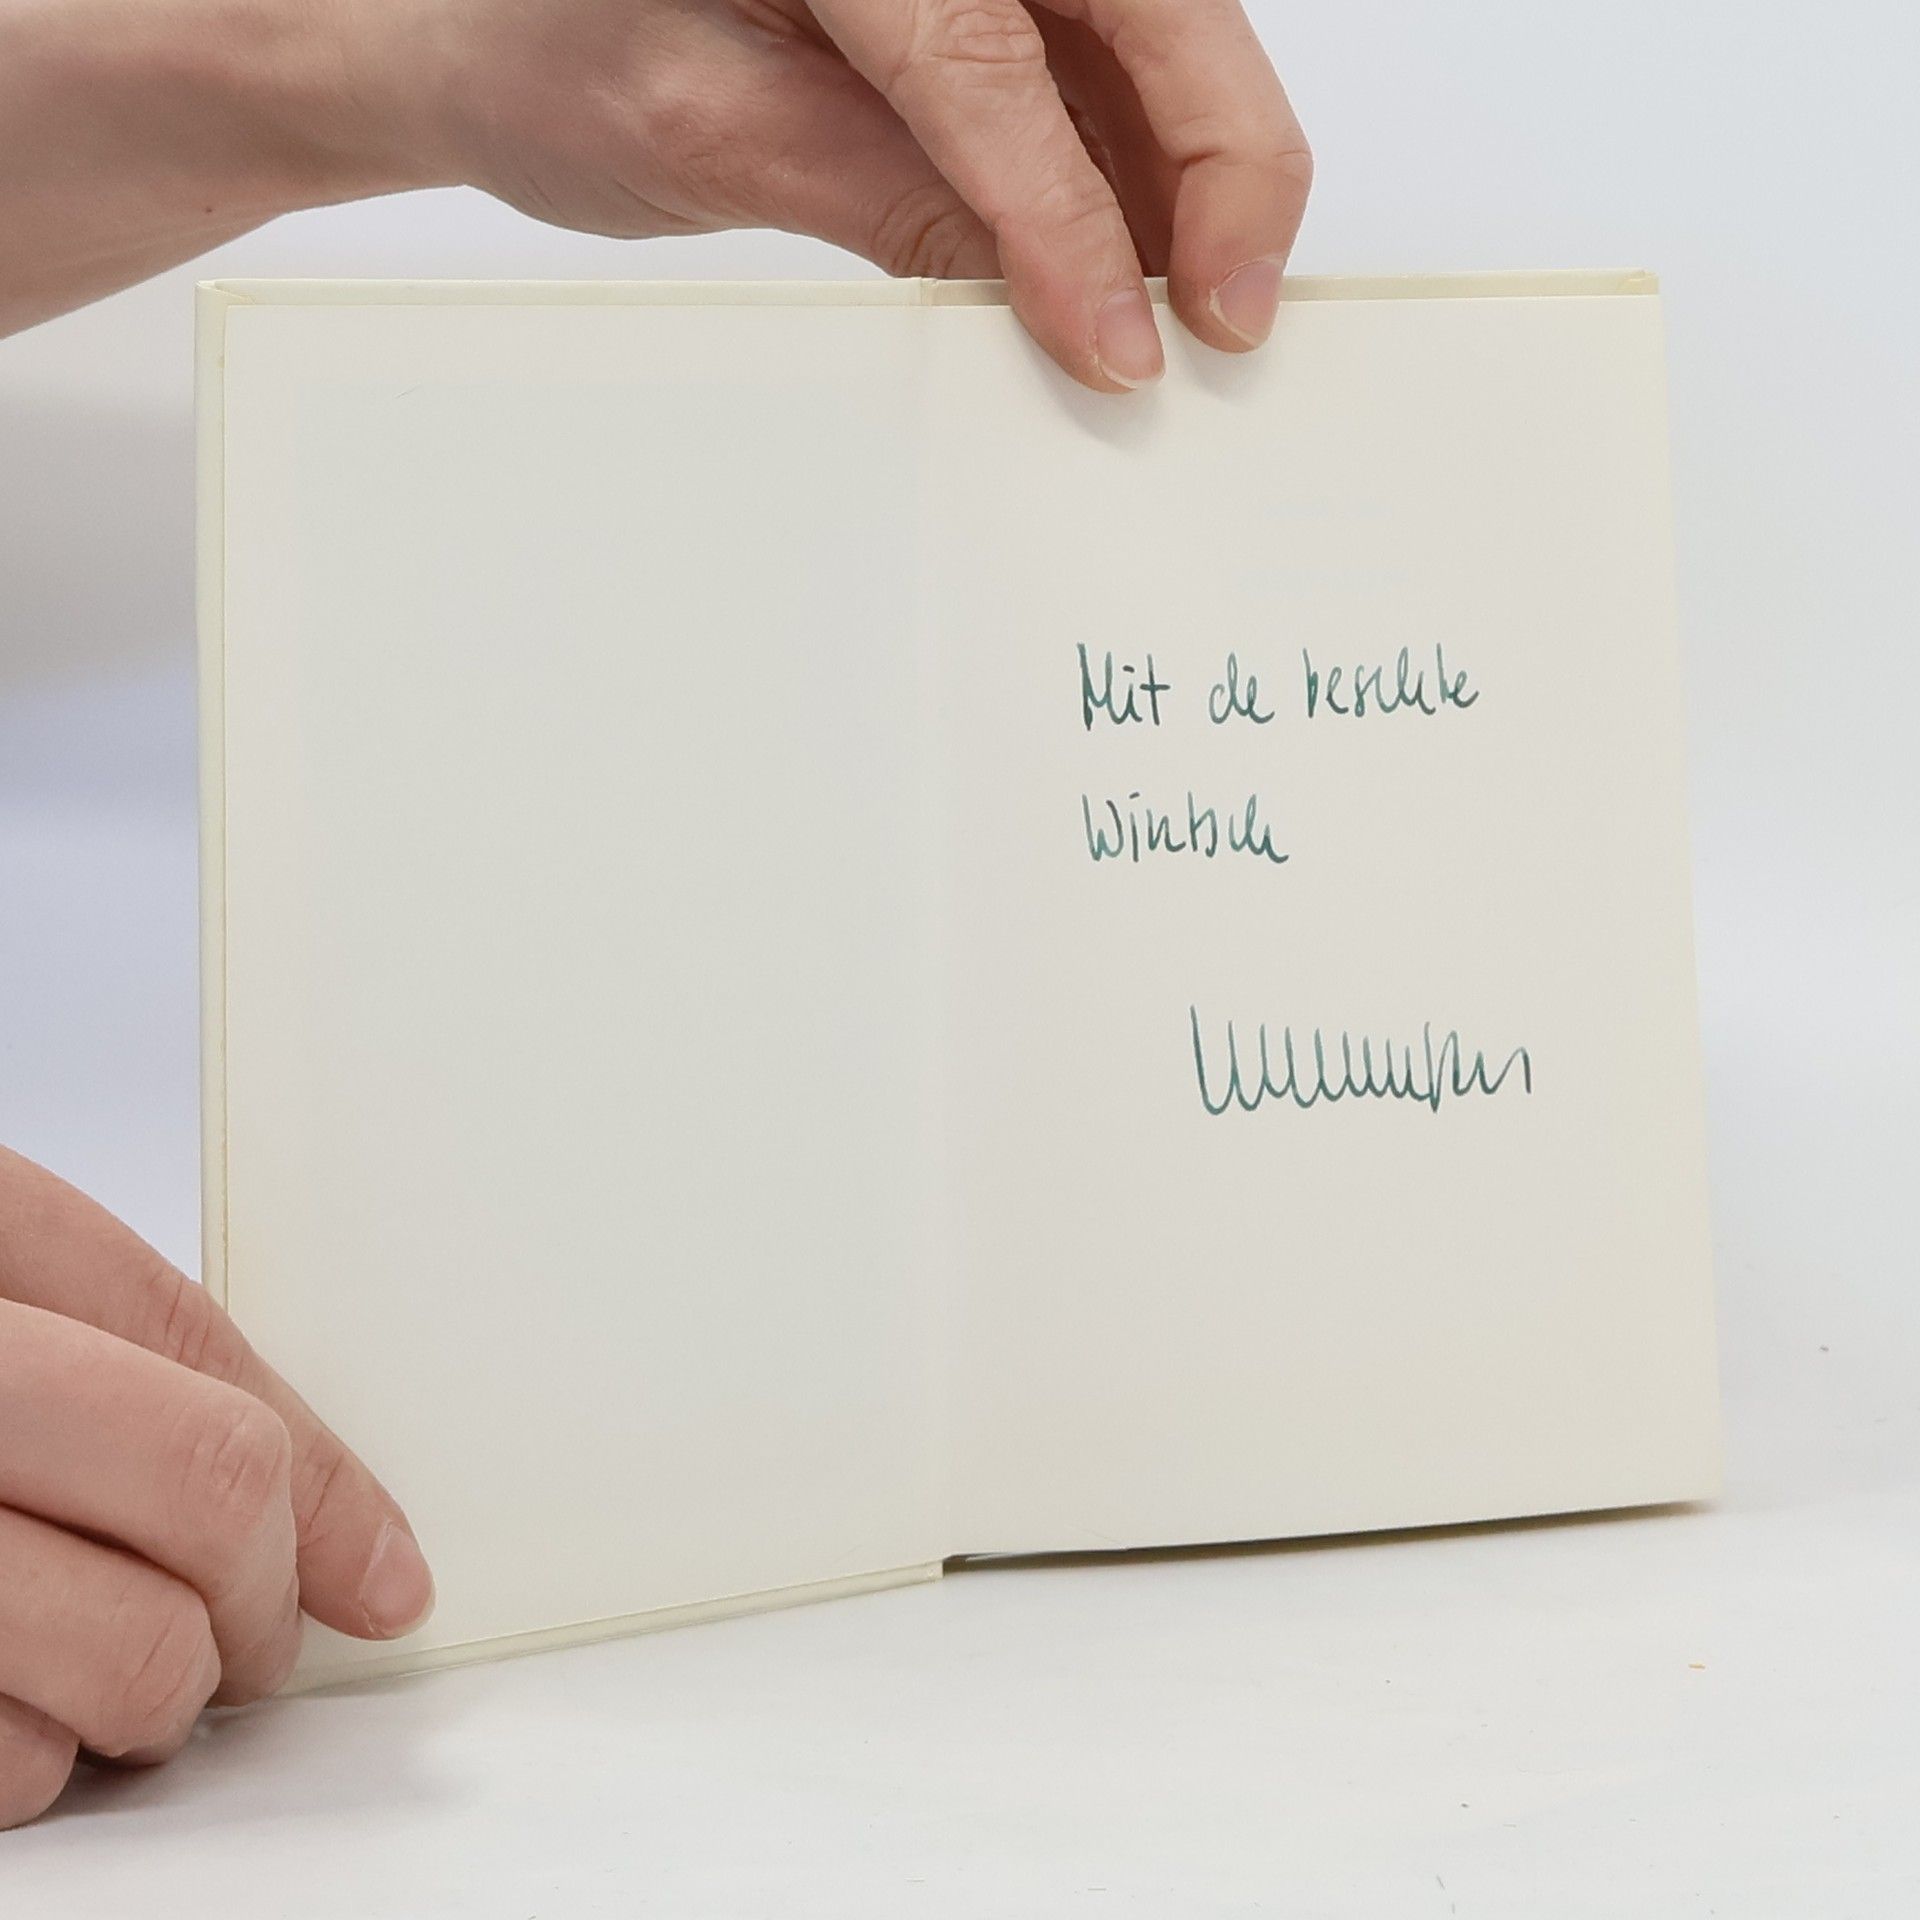 Mit de beschte
Wüntsch